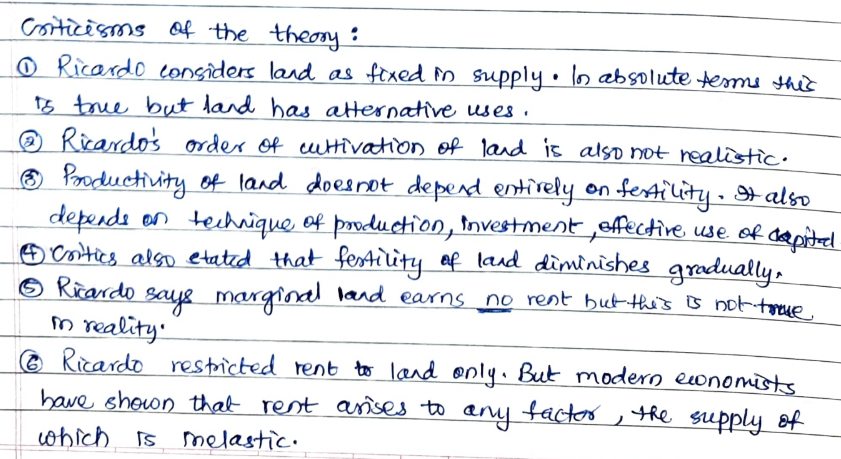 Criticisms of the theory :
① Ricardo considers land as fixed in supply. In absolute terms this
is true but land has alternative uses.
② Ricardo's order of cultivation of land is also not realistic.
③ Productivity of land doesnot depend entirely on fertility. It also
depends on technique of production, investment, effective use of capital
④ Critics also stated that fertility of land diminishes gradually.
⑤ Ricardo says marginal land earns no rent but this is not true
in reality.
⑥ Ricardo restricted rent to land only. But modern economists
have shown that rent arises to any factor, the supply of
which is inelastic.